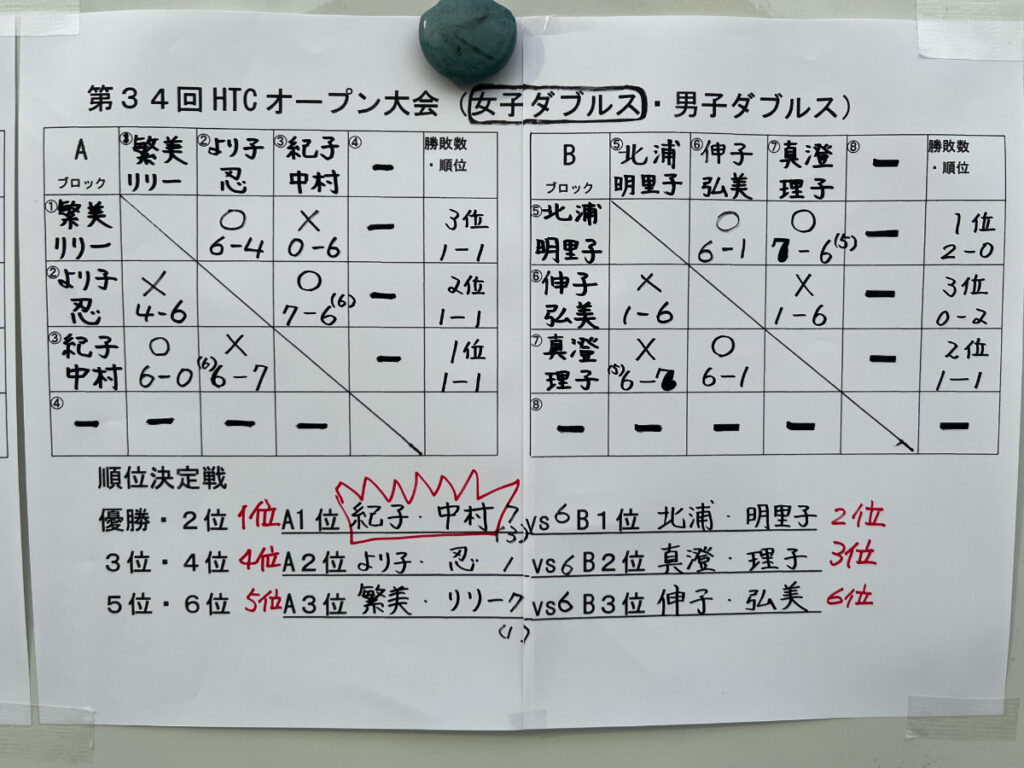 第３４回 HTC オープン大会（女子ダブルス・男子ダブルス）
A ブロック ①繁美 リリー ②より子 忍 ③紀子 中村 ④ ー 勝敗数・順位
①繁美 リリー ○ 6-4 × 0-6 ー 3位 1-1
②より子 忍 × 4-6 ○ 7-6(6) ー 2位 1-1
③紀子 中村 ○ 6-0 × (6)6-7 ー 1位 1-1
④ ー ー ー ー
B ブロック ⑤北浦 明里子 ⑥伸子 弘美 ⑦真澄 理子 ⑧ ー 勝敗数・順位
⑤北浦 明里子 ○ 6-1 ○ 7-6(5) ー 1位 2-0
⑥伸子 弘美 × 1-6 × 1-6 ー 3位 0-2
⑦真澄 理子 × (5)6-7 ○ 6-1 ー 2位 1-1
⑧ ー ー ー ー ー
順位決定戦
優勝・２位 1位 A１位 紀子・中村 7(3) vs 6 B１位 北浦・明里子 2位
３位・４位 4位 A２位 より子・忍 1 vs 6 B２位 真澄・理子 3位
５位・６位 5位 A３位 繁美・リリー 7(1) vs 6 B３位 伸子・弘美 6位